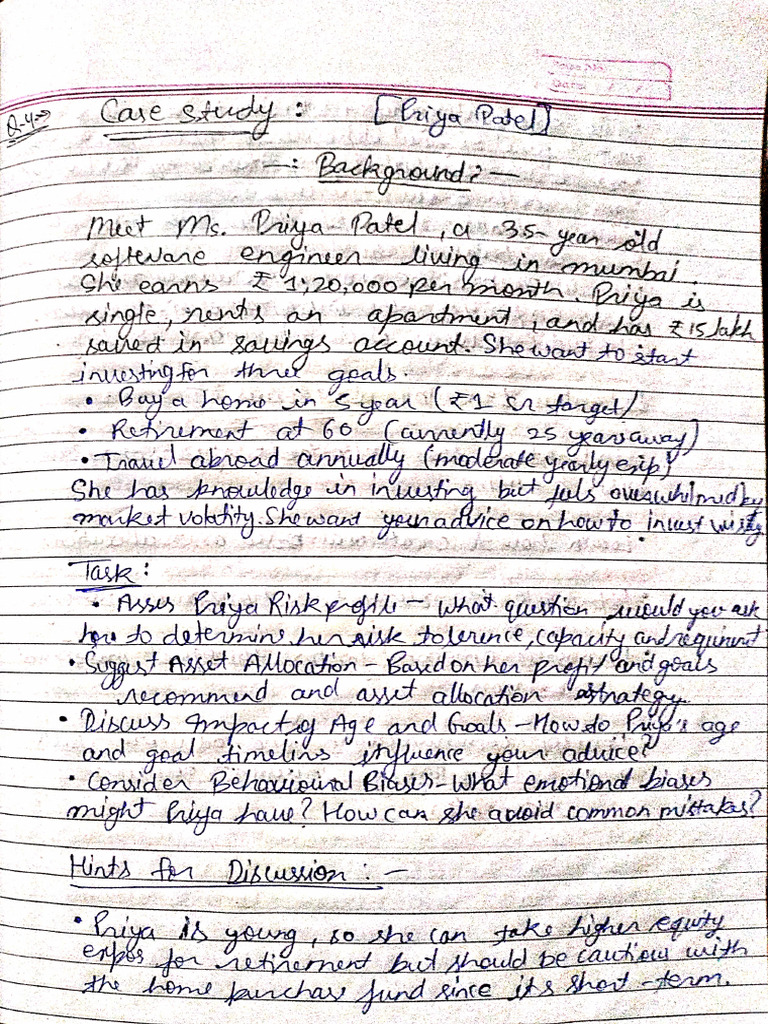 Page No.
Date / /
Q-4→ Case study : [Priya Patel]
—: Background :—
Meet Ms. Priya Patel, a 35-year old
software engineer living in mumbai.
She earns ₹ 1,20,000 per month. Priya is
single, rents an apartment, and has ₹15 lakh
saved in savings account. She want to start
investing for three goals.
• Buy a home in 5 year (₹1 cr target)
• Retirement at 60 (currently 25 years away)
• Travel abroad annually (moderate yearly
She has knowledge in investing but feels overwhelmed by
market volatity. She want your advice on how to invest
Task :
• Asses Priya Risk profile - what question would you ask
to determine her risk tolerence, capacity and
• Suggest Asset Allocation - Based on her profit and goals
recommend and asset allocation strategy.
• Discuss Impact of Age and Goals - How do Priya's age
and goal timelins influence your advice?
• Consider Behavioural Biases - What emotional biases
might Priya have? How can she avoid common mistakes?
Hints for Discussion : -
• Priya is young, so she can take higher equity
expos for retirement but should be cautious with
the home purchase fund since its short-term.